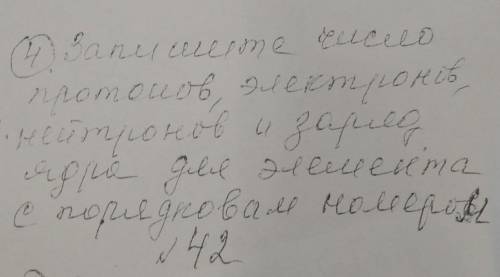 4 Запишите число
протонов, электронів,
нейтронов и заряд
ядра для элемента
с порядковам номером
№42